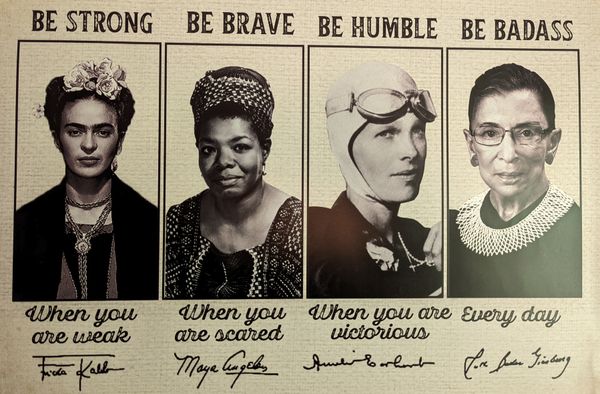 BE STRONG
BE BRAVE
BE HUMBLE
BE BADASS
When you
are weak
When you
are scared
When you are
victorious
Every day
Frida Kahlo
Maya Angelou
Amelia Earhart
Ruth Bader Ginsburg